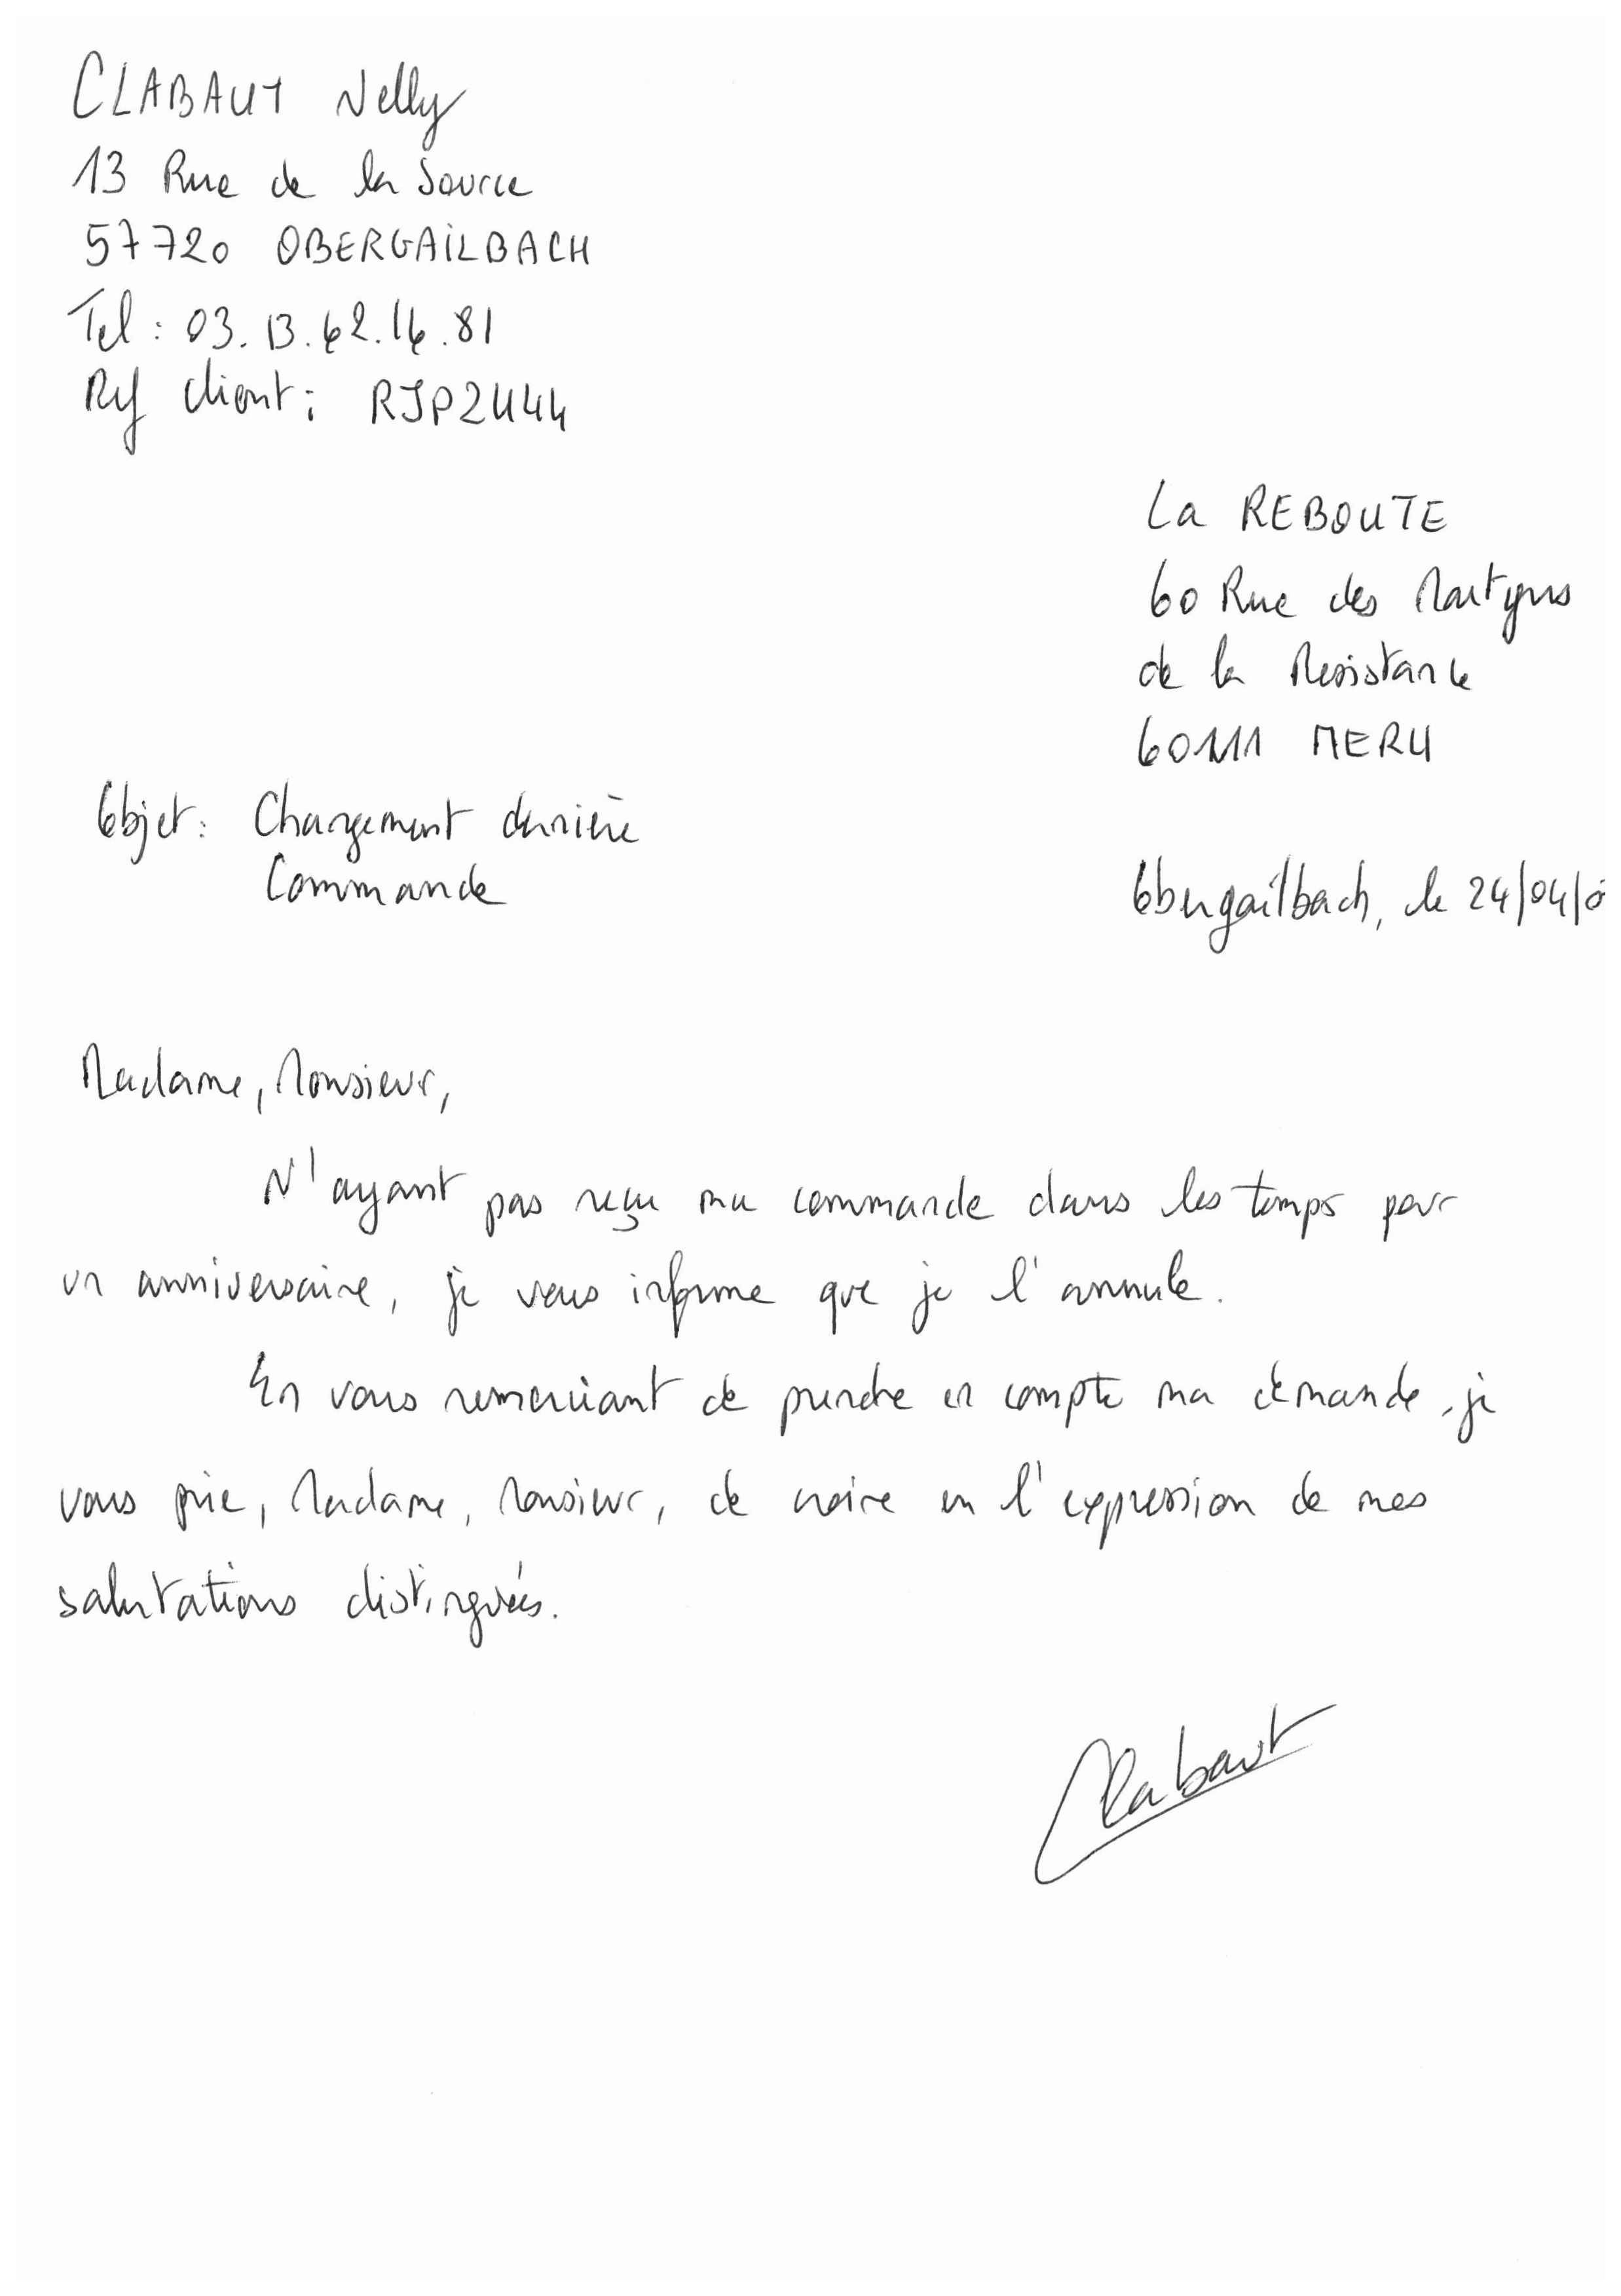 CLABAUT Nelly
13 Rue de la Source
57720 OBERGAILBACH
Tel : 03.13.62.16.81
Ref client : RJP2444
La REBOUTE
60 Rue des Martyrs
de la Resistance
60111 MERU
Objet : Changement dernière
Commande
Obergailbach, le 24/04/0
Madame, Monsieur,
N'ayant pas reçu ma commande dans les temps pour
un anniversaire, je vous informe que je l'annule.
En vous remerciant de prendre en compte ma demande, je
vous prie, Madame, Monsieur, de croire en l'expression de mes
salutations distinguées.
Clabaut